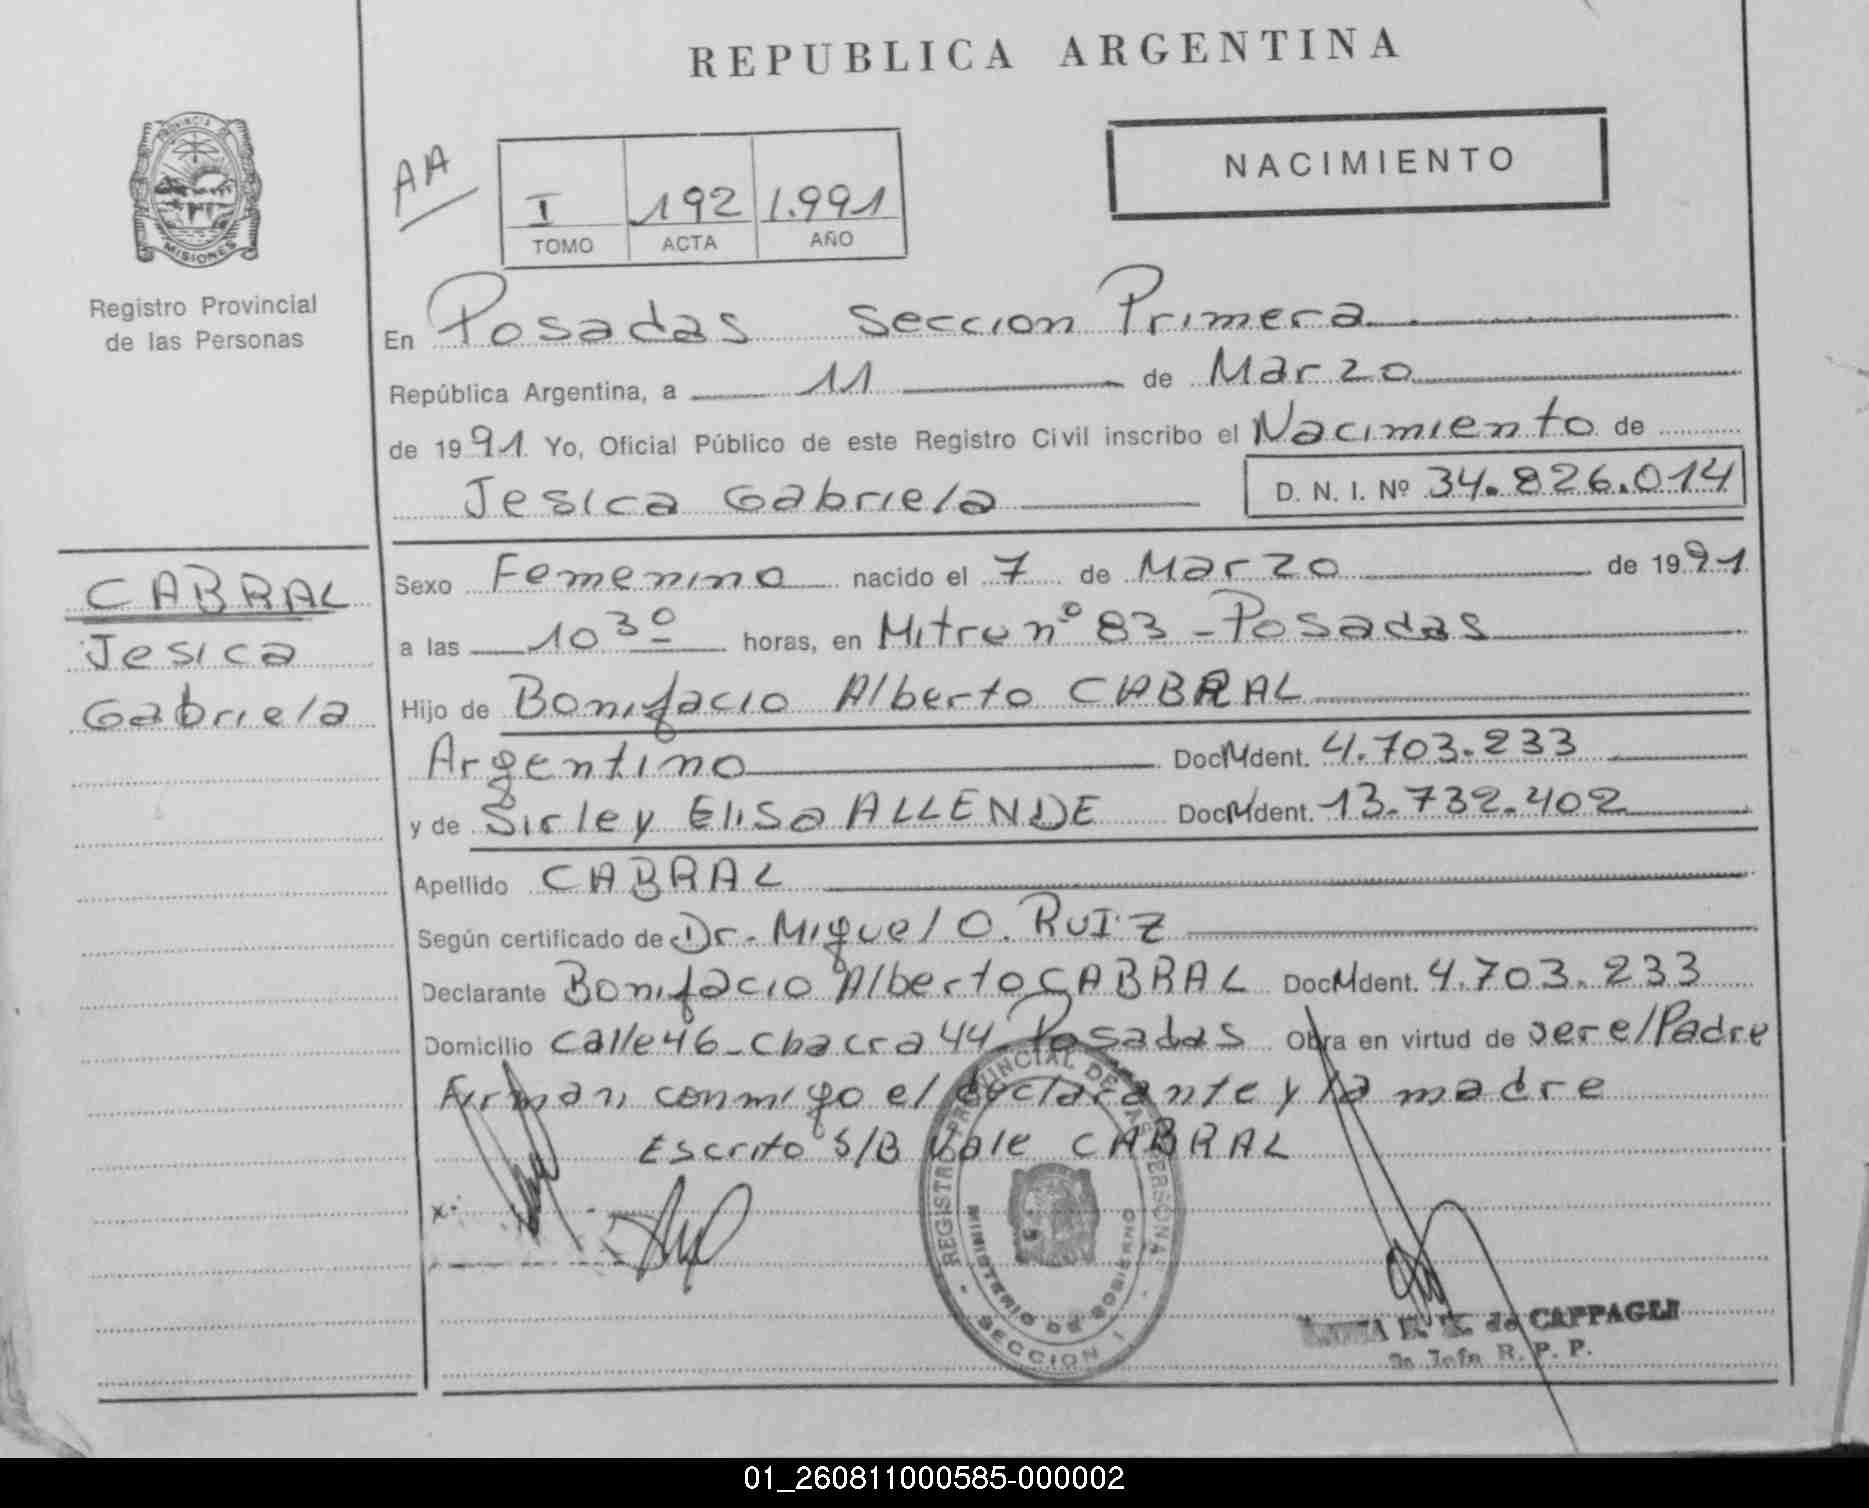 REPUBLICA ARGENTINA
PROVINCIA DE
MISIONES
Registro Provincial
de las Personas
AA
I 192 1.991
TOMO ACTA AÑO
NACIMIENTO
En Posadas Seccion Primera
República Argentina, a 11 de Marzo
de 1991 Yo, Oficial Público de este Registro Civil inscribo el Nacimiento de
Jesica Gabriela D. N. I. Nº 34.826.014
CABRAL
Jesica
Gabriela
Sexo Femenino nacido el 7 de Marzo de 1991
a las 10 30 horas, en Mitre nº 83 - Posadas
Hijo de Bonifacio Alberto CABRAL
Argentino DocMdent. 4.703.233
y de Sirley Elisa ALLENDE DocMdent. 13.732.402
Apellido CABRAL
Según certificado de Dr. Miguel O. RUIZ
Declarante Bonifacio Alberto CABRAL DocMdent. 4.703.233
Domicilio Calle 46 - Chacra 44 Posadas Obra en virtud de ser el Padre
Firman conmigo el declarante y la madre
Escrito S/B Vale CABRAL
x.
REGISTRO PROVINCIAL DE LAS PERSONAS
MINISTERIO DE GOBIERNO
SECCION 1
de CAPPAGLI
R. P. P.
01_260811000585-000002